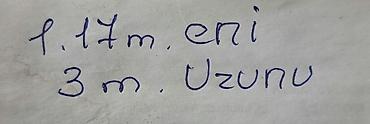 1.17m. eni
3 m. Uzunu